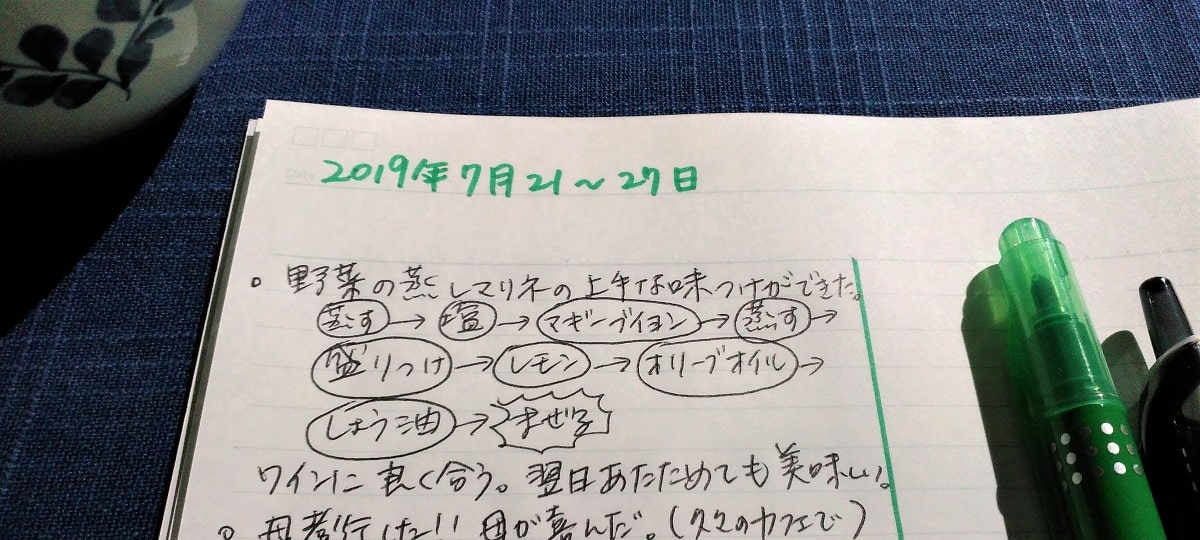 Date
2019年7月21〜27日
。野菜の蒸しマリネの上手な味つけができた。
蒸す→塩→マギーブイヨン→蒸す→
盛りつけ→レモン→オリーブオイル→
しょう油→まぜる
ワインに良く合う。翌日あたためても美味しい。
。母孝行した!! 母が喜んだ。(久々のカフェで)